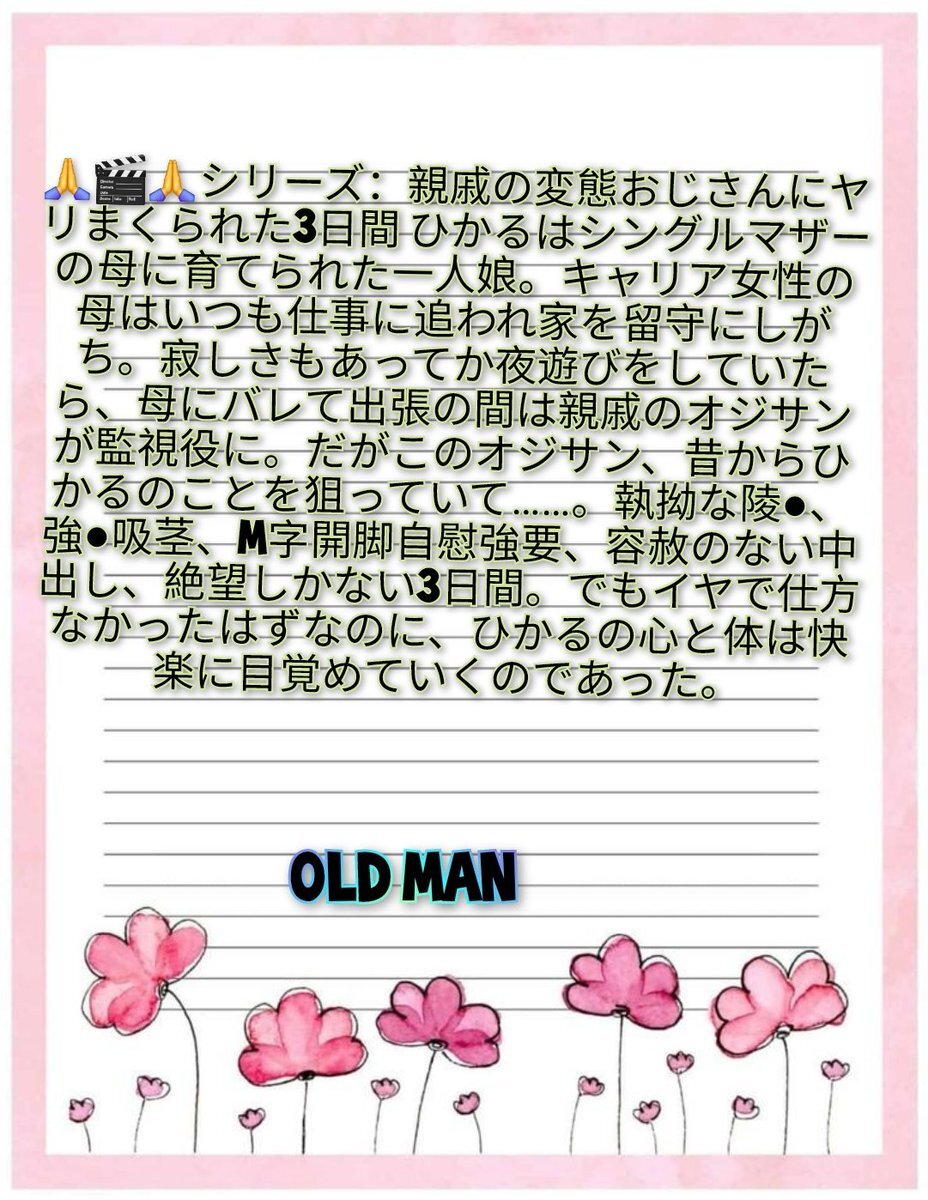 🙏🎬🙏 シリーズ：親戚の変態おじさんにヤ
リまくられた3日間 ひかるはシングルマザー
の母に育てられた一人娘。キャリア女性の
母はいつも仕事に追われ家を留守にしが
ち。寂しさもあってか夜遊びをしていた
ら、母にバレて出張の間は親戚のオジサン
が監視役に。だがこのオジサン、昔からひ
かるのことを狙っていて……。執拗な陵●、
強●吸茎、M字開脚自慰強要、容赦のない中
出し、絶望しかない3日間。でもイヤで仕方
なかったはずなのに、ひかるの心と体は快
楽に目覚めていくのであった。
OLD MAN